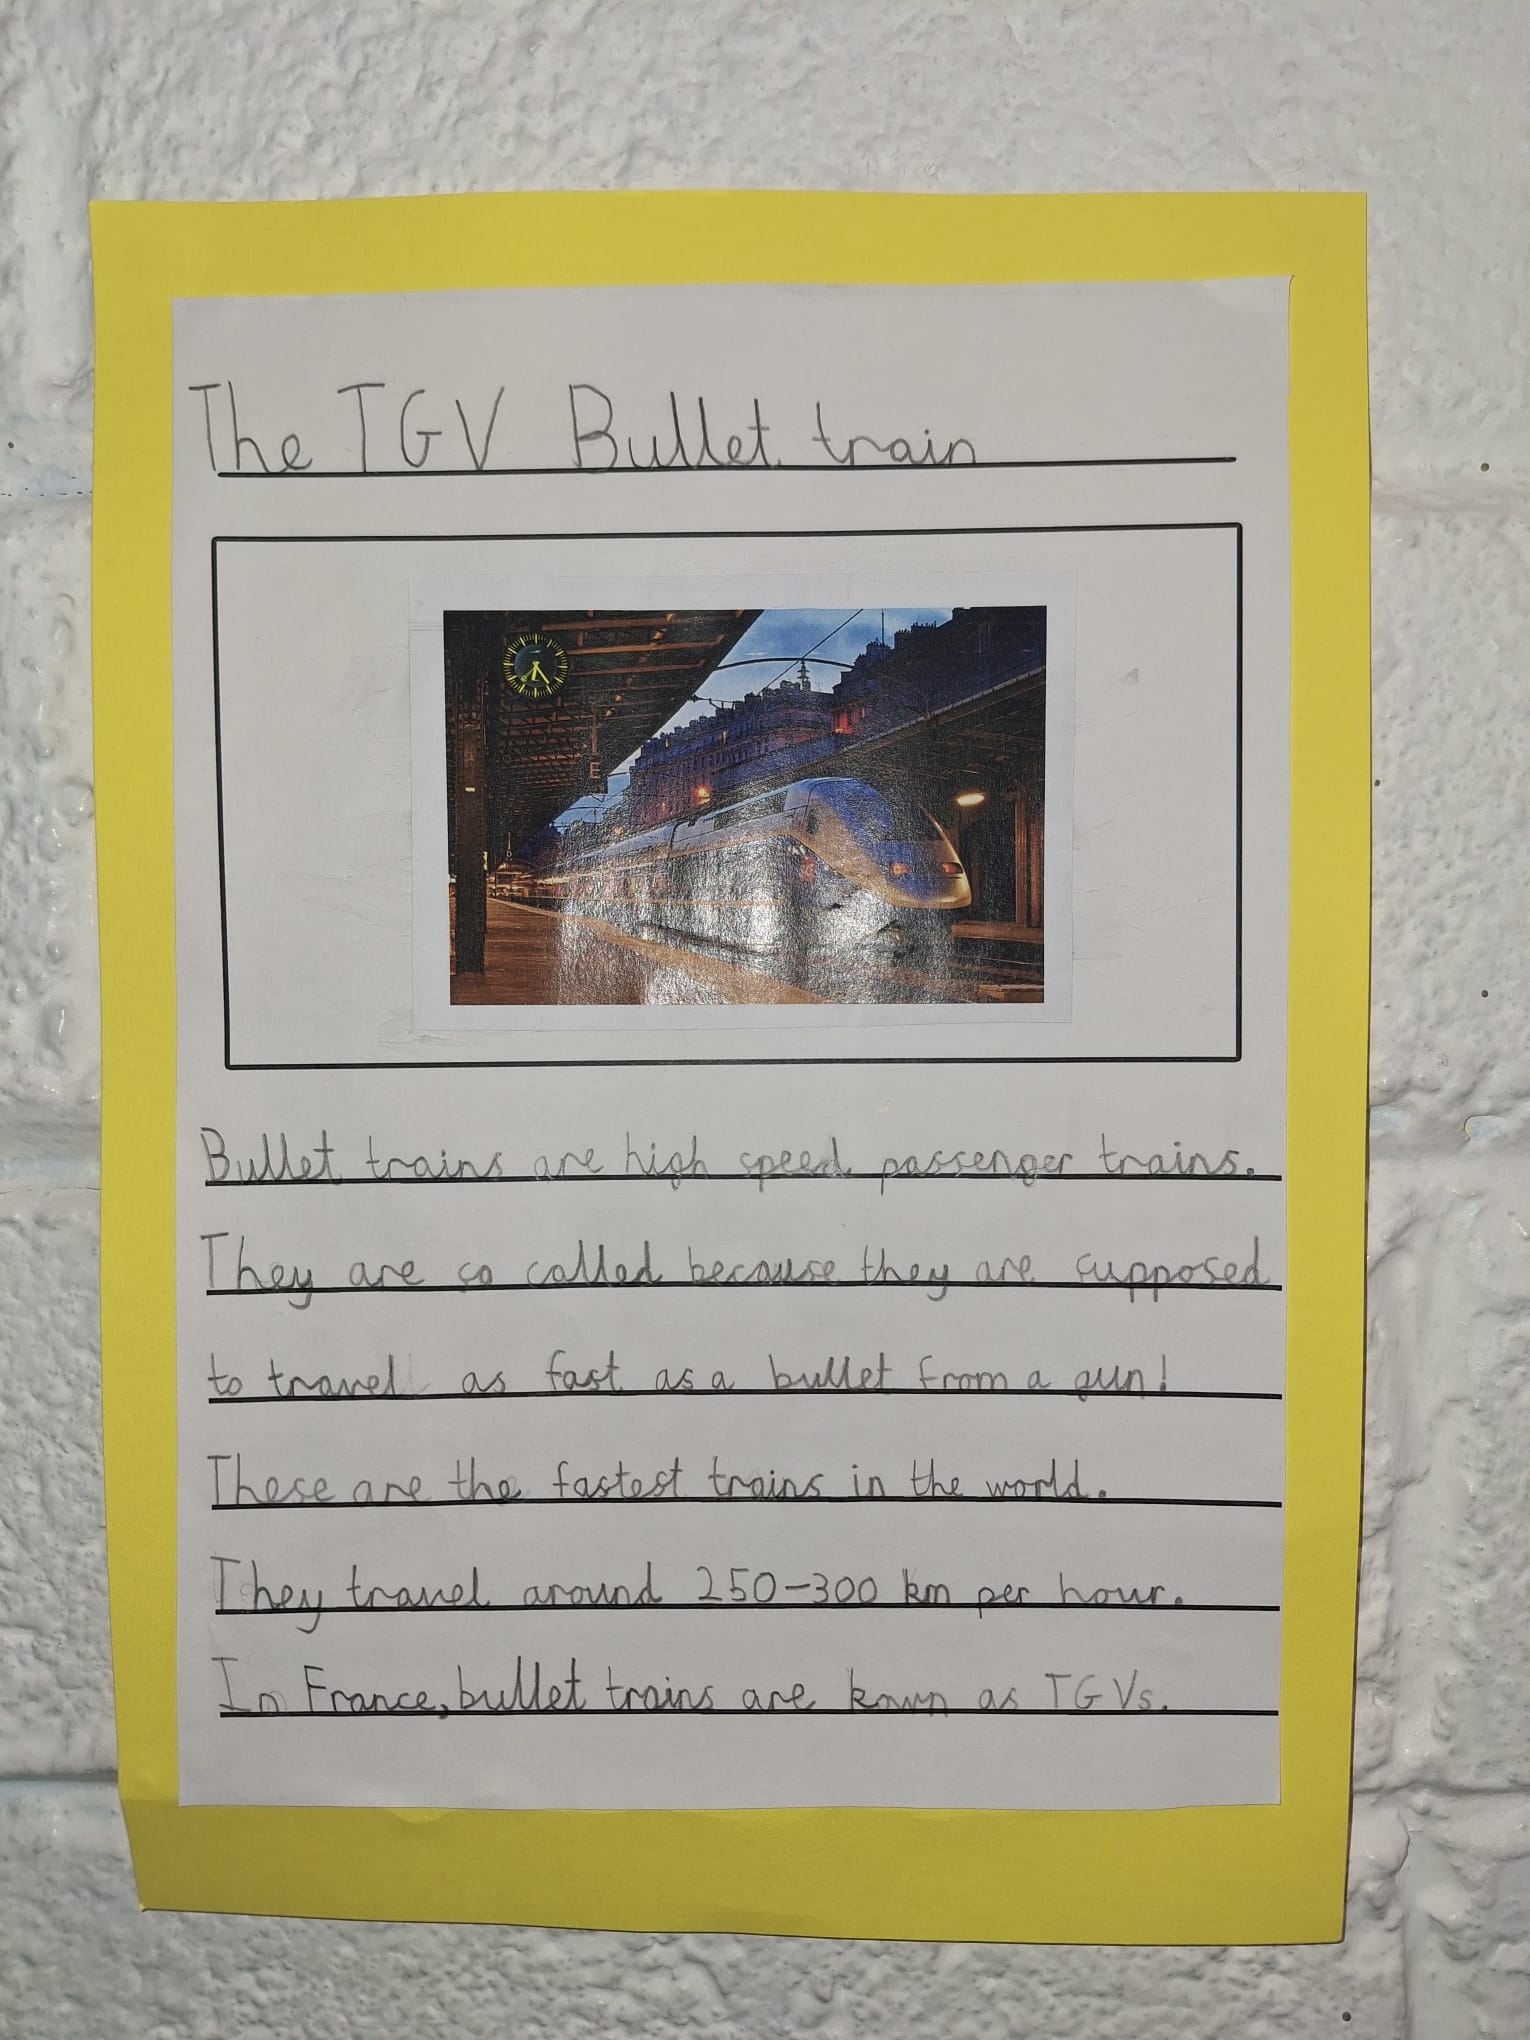 The TGV Bullet train
E
Bullet trains are high speed passenger trains.
They are so called because they are supposed
to travel as fast as a bullet from a gun!
These are the fastest trains in the world.
They travel around 250-300 km per hour.
In France, bullet trains are known as TGVs.